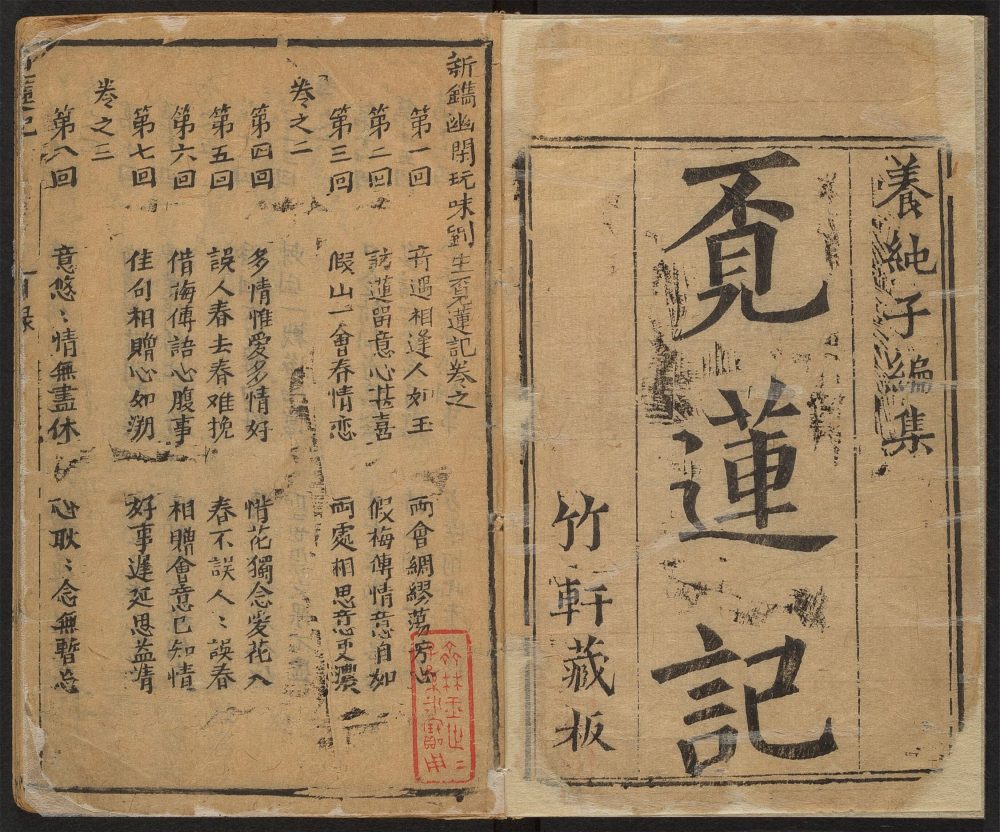 養純子編集
覔蓮記
竹軒藏板
新鐫幽閑玩味劉生覓蓮記卷之
第一回 奇遇相逢人如玉 両會綢繆蕩
第二回 訪蓮留意心甚喜 假梅傳情意自如
第三回 假山一會春情恋 両處相思意更濃
卷之二
第四回 多情惟愛多情好 惜花獨念愛花人
第五回 誤人春去春难挽 春不誤人〻誤春
第六回 借梅傳語心腹事 相贈會意已知情
第七回 佳句相贈心如溯 好事遲延思益
卷之三
第八回 意悠〻情無盡休 心耿〻念無暫
蓮記
目録